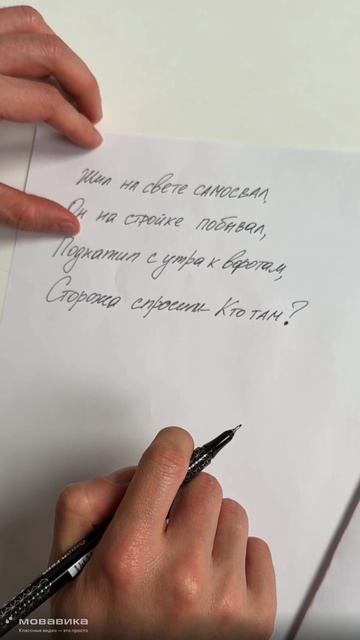 Жил на свете самосвал,
Он на стройке побывал,
Подкатил с утра к воротам,
Сторожа спросили Кто там?
мовавика
Классные видео — это просто